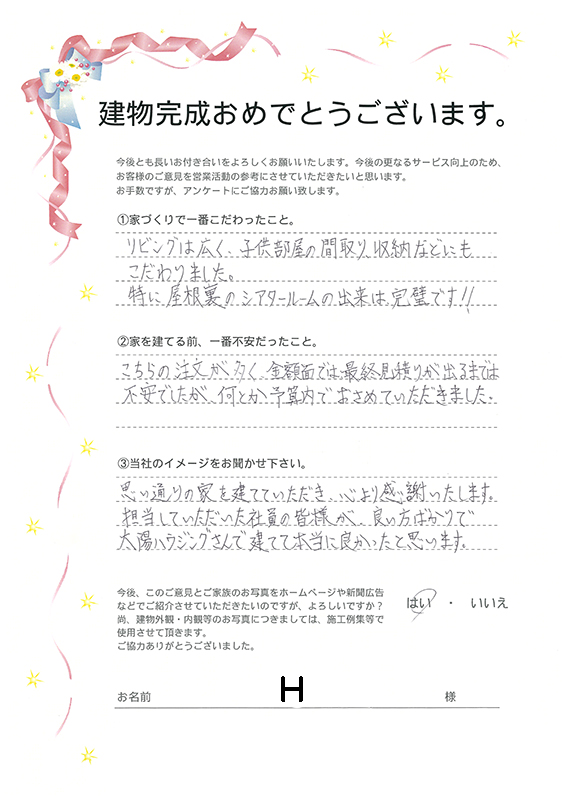 建物完成おめでとうございます。
今後とも長いお付き合いをよろしくお願いいたします。今後の更なるサービス向上のため、
お客様のご意見を営業活動の参考にさせていただきたいと思います。
お手数ですが、アンケートにご協力お願い致します。
①家づくりで一番こだわったこと。
リビングは広く、子供部屋の間取り、収納などにも
こだわりました。
特に屋根裏のシアタールームの出来は完璧です!!
②家を建てる前、一番不安だったこと。
こちらの注文が多く、金額面では最終見積りが出るまでは
不安でしたが、何とか予算内でおさめていただきました。
③当社のイメージをお聞かせ下さい。
思い通りの家を建てていただき、心より感謝いたします。
担当していただいた社員の皆様が、良い方ばかりで
太陽ハウジングさんで建てて本当に良かったと思います。
今後、このご意見とご家族のお写真をホームページや新聞広告
などでご紹介させていただきたいのですが、よろしいですか？ はい ・ いいえ
尚、建物外観・内観等のお写真につきましては、施工例集等で
使用させて頂きます。
ご協力ありがとうございました。
お名前 H 様